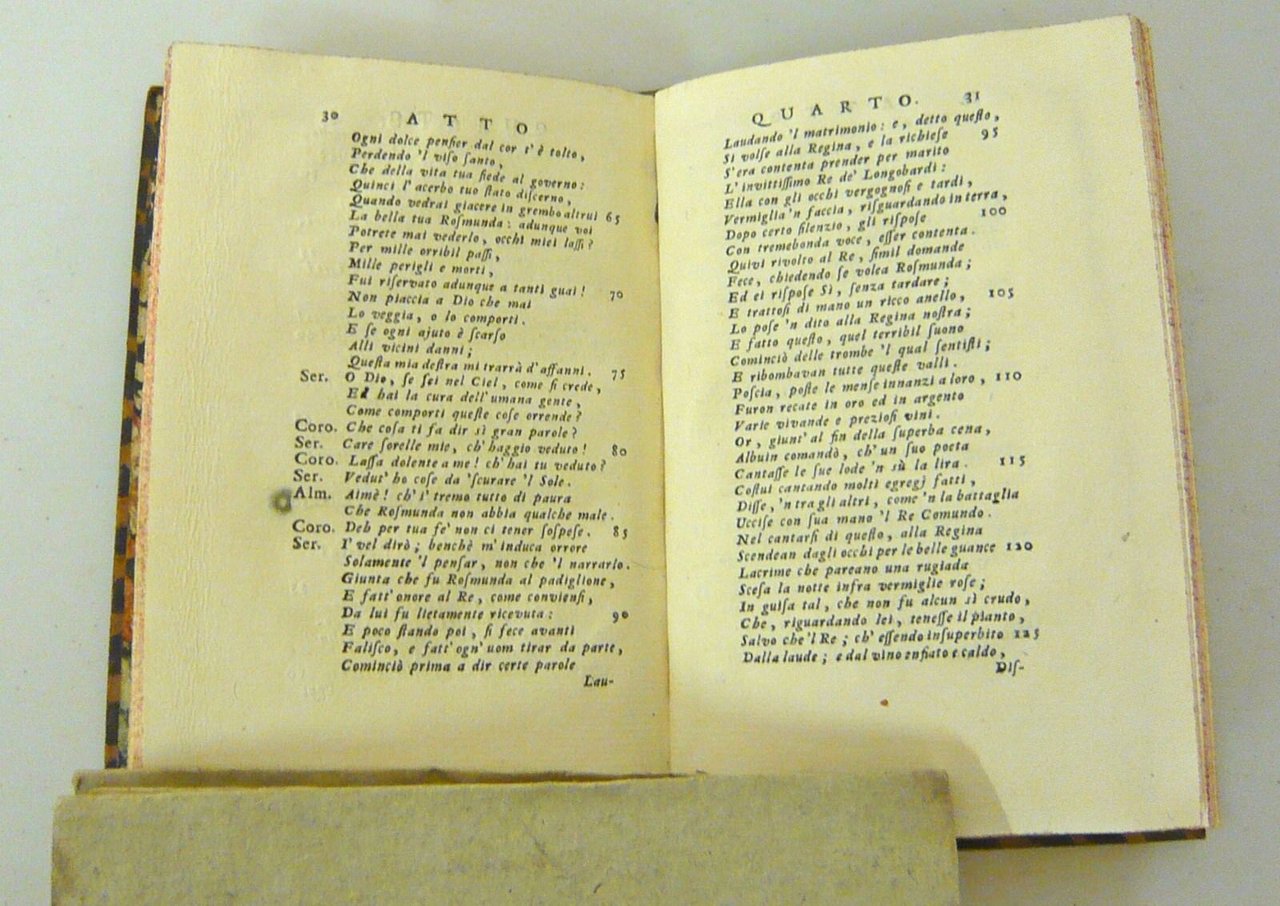 30 ATTO
Ogni dolce penſier dal cor t'è tolto,
Perdendo 'l viſo ſanto,
Che della vita tua ſiede al governo:
Quinci l'acerbo tuo ſtato diſcerno,
Quando vedrai giacere in grembo altrui 65
La bella tua Roſmunda: adunque voi
Potrete mai vederlo, occhi miei laſſi?
Per mille orribil paſſi,
Mille perigli e morti,
Fui riſervato adunque a tanti guai! 70
Non piaccia a Dio che mai
Lo veggia, o lo comporti.
E ſe ogni ajuto è ſcarſo
Alli vicini danni;
Queſta mia deſtra mi trarrà d'affanni. 75
Ser. O Dio, ſe ſei nel Ciel, come ſi crede,
Ed hai la cura dell'umana gente,
Come comporti queſte coſe orrende?
Coro. Che coſa ti fa dir sì gran parole?
Ser. Care ſorelle mie, ch'haggio veduto! 80
Coro. Laſſa dolente a me! ch'hai tu veduto?
Ser. Vedut' ho coſe da 'ſcurare 'l Sole.
Alm. Aimè! ch'i' tremo tutto di paura
Che Roſmunda non abbia qualche male.
Coro. Deh per tua fe' non ci tener ſoſpeſe. 85
Ser. I' vel dirò; benchè m'induca orrore
Solamente 'l penſar, non che 'l narrarlo.
Giunta che fu Roſmunda al padiglione,
E fatt'onore al Re, come convienſi,
Da lui fu lietamente ricevuta: 90
E poco ſtando poi, ſi fece avanti
Faliſco, e fatt'ogn'uom tirar da parte,
Cominciò prima a dir certe parole
Lau-
QUARTO. 31
Laudando 'l matrimonio: e, detto queſto,
Si volſe alla Regina, e la richieſe 95
S'era contenta prender per marito
L'invittiſſimo Re de' Longobardi:
Ella con gli occhi vergognoſi e tardi,
Vermiglia 'n faccia, riſguardando in terra,
Dopo certo ſilenzio, gli riſpoſe 100
Con tremebonda voce, eſſer contenta.
Quivi rivolto al Re, ſimil domande
Fece, chiedendo ſe volea Roſmunda;
Ed ei riſpoſe Sì, ſenza tardare;
E trattoſi di mano un ricco anello, 105
Lo poſe 'n dito alla Regina noſtra;
E fatto queſto, quel terribil ſuono
Cominciò delle trombe 'l qual ſentiſti;
E ribombavan tutte queſte valli.
Poſcia, poſte le menſe innanzi a loro, 110
Furon recate in oro ed in argento
Varie vivande e prezioſi vini.
Or, giunt'al fin della ſuperba cena,
Albuin comandò, ch'un ſuo poeta
Cantaſſe le ſue lode 'n sù la lira. 115
Coſtui cantando molti egregj fatti,
Diſſe, 'n tra gli altri, come 'n la battaglia
Ucciſe con ſua mano 'l Re Comundo.
Nel cantarſi di queſto, alla Regina
Scendean dagli occhi per le belle guance 120
Lacrime che pareano una rugiada
Sceſa la notte infra vermiglie roſe;
In guiſa tal, che non fu alcun sì crudo,
Che, riguardando lei, teneſſe il pianto,
Salvo che 'l Re; ch'eſſendo inſuperbito 125
Dalla laude; e dal vino enfiato e caldo,
Diſ-